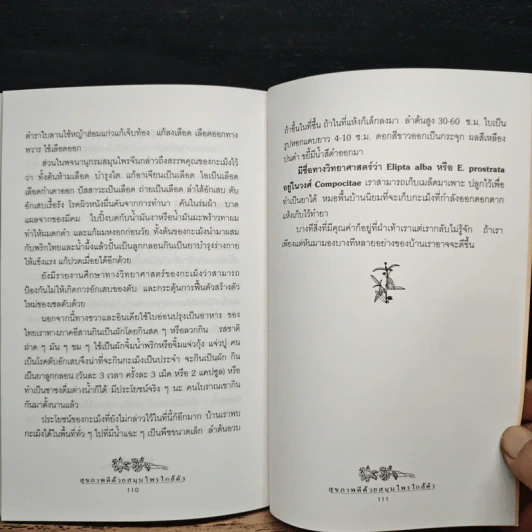 ตำราใบลานใช้หญ้าฮ่อมแก่วแก้เจ็บท้อง แก้ลงเลือด เลือดออกทาง
ทวาร ใช้เลือดออก
ส่วนในพจนานุกรมสมุนไพรจีนกล่าวถึงสรรพคุณของกะเม็งไว้
ว่า ทั้งต้นห้ามเลือด บำรุงไต แก้อาเจียนเป็นเลือด ไอเป็นเลือด
เลือดกำเดาออก ปัสสาวะเป็นเลือด ถ่ายเป็นเลือด ลำไส้อักเสบ ตับ
อักเสบเรื้อรัง โรคผิวหนังผื่นคันจากการทำนา คันในร่มผ้า บาด
แผลจากของมีคม ใบปิ้งบดกับน้ำมันงาหรือน้ำมันมะพร้าวทาผม
ทำให้ผมดกดำ และแก้ผมหงอกก่อนวัย ทั้งต้นของกะเม็งนำมาผสม
กับพริกไทยและน้ำผึ้งแล้วปั้นเป็นลูกกลอนกินเป็นยาบำรุงร่างกาย
ให้แข็งแรง แก้ปวดเมื่อยได้อีกด้วย
ยังมีรายงานศึกษาทางวิทยาศาสตร์ของกะเม็งว่าสามารถ
ป้องกันไม่ให้เกิดการอักเสบของตับ และกระตุ้นการฟื้นตัวสร้างตัว
ใหม่ของเซลตับด้วย
นอกจากนี้ทางชวาและอินเดียใช้ใบอ่อนปรุงเป็นอาหาร ของ
ไทยเราทางภาคอีสานกินเป็นผักโดยกินสด ๆ หรือลวกกิน รสชาติ
ฝาด ๆ มัน ๆ ขม ๆ ใช้เป็นผักจิ้มน้ำพริกหรือจิ้มแจ่วกุ้ง แจ่วปู คน
เป็นโรคตับอักเสบจึงน่าที่จะกินกะเม็งเป็นประจำ จะกินเป็นผัก กิน
เป็นยาลูกกลอน (วันละ 3 เวลา ครั้งละ 3 เม็ด หรือ 2 แคปซูล) หรือ
ทำเป็นชาชงดื่มต่างน้ำก็ได้ มีประโยชน์จริง ๆ นะ คนโบราณเขากิน
กันมาตั้งนานแล้ว
ประโยชน์ของกะเม็งที่ยังไม่กล่าวไว้ในที่นี้ก็อีกมาก บ้านเราพบ
กะเม็งได้ในพื้นที่ทั่ว ๆ ไปที่มีน้ำแฉะ ๆ เป็นพืชขนาดเล็ก ลำต้นอวบ
สุขภาพดีด้วยสมุนไพรใกล้ตัว
110
ถ้าขึ้นในที่ชื้น ถ้าในที่แห้งก็เล็กลงมา ลำต้นสูง 30-60 ซ.ม. ใบเป็น
รูปหอกแคบยาว 4-10 ซ.ม. ดอกสีขาวออกเป็นกระจุก ผลสีเหลือง
ปนดำ ขยี้มีน้ำสีดำออกมา
มีชื่อทางวิทยาศาสตร์ว่า Elipta alba หรือ E. prostrata
อยู่ในวงศ์ Compocitae เราสามารถเก็บเมล็ดมาเพาะ ปลูกไว้เพื่อ
ทำเป็นยาได้ หมอพื้นบ้านนิยมที่จะเก็บกะเม็งที่กำลังออกดอกตาก
แห้งเก็บไว้ทำยา
บางทีสิ่งที่มีคุณค่าก็อยู่ที่ฝ่าเท้าเราแต่เรากลับไม่รู้จัก ถ้าเรา
เพียงแต่หันมามองบางทีหลายอย่างของบ้านเราอาจจะดีขึ้น
สุขภาพดีด้วยสมุนไพรใกล้ตัว
111